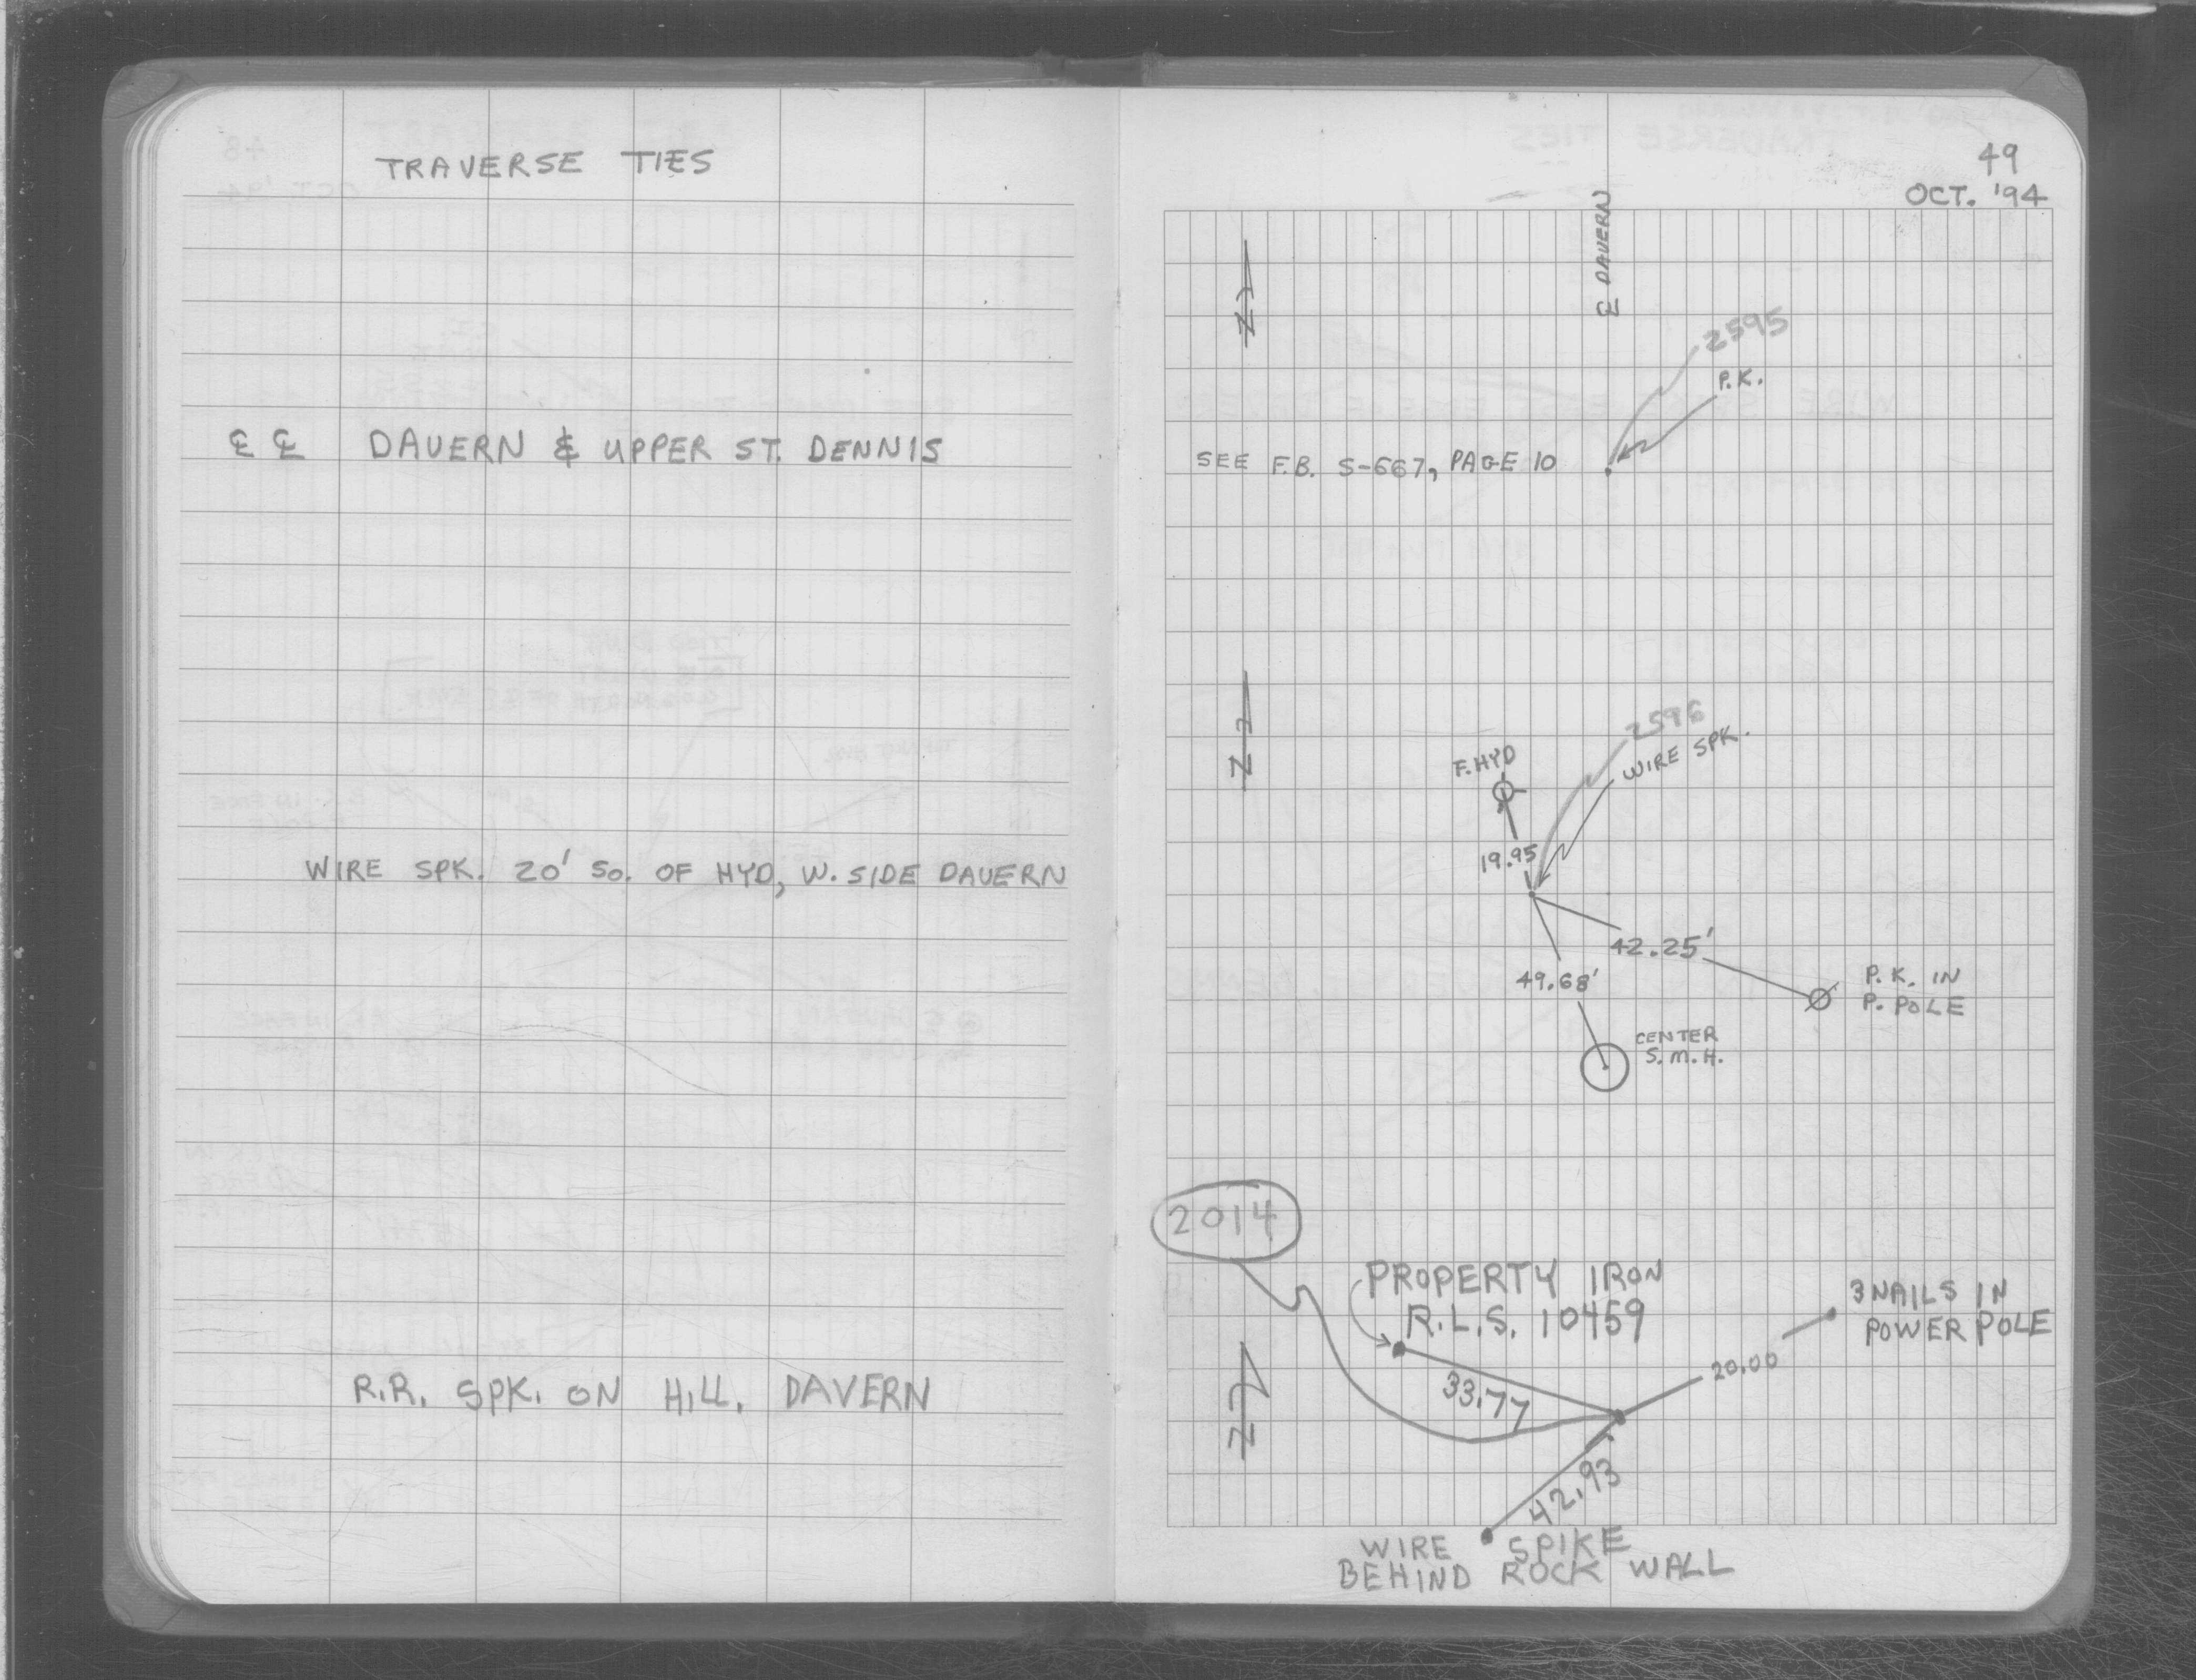 TRAVERSE TIES
℄ ℄ DAVERN & UPPER ST. DENNIS
WIRE SPK. 20' SO. OF HYD, W. SIDE DAVERN
R.R. SPK. ON HILL, DAVERN
49
OCT. '94
℄ DAVERN
N
2595
P.K.
SEE F.B. S-667, PAGE 10
N
2596
WIRE SPK.
F. HYD
19.95
42.25'
49.68'
P.K. IN
P. POLE
CENTER
S.M.H.
2014
PROPERTY IRON
R.L.S. 10459
3 NAILS IN
POWER POLE
20.00
33.77
N
42.93
WIRE SPIKE
BEHIND ROCK WALL